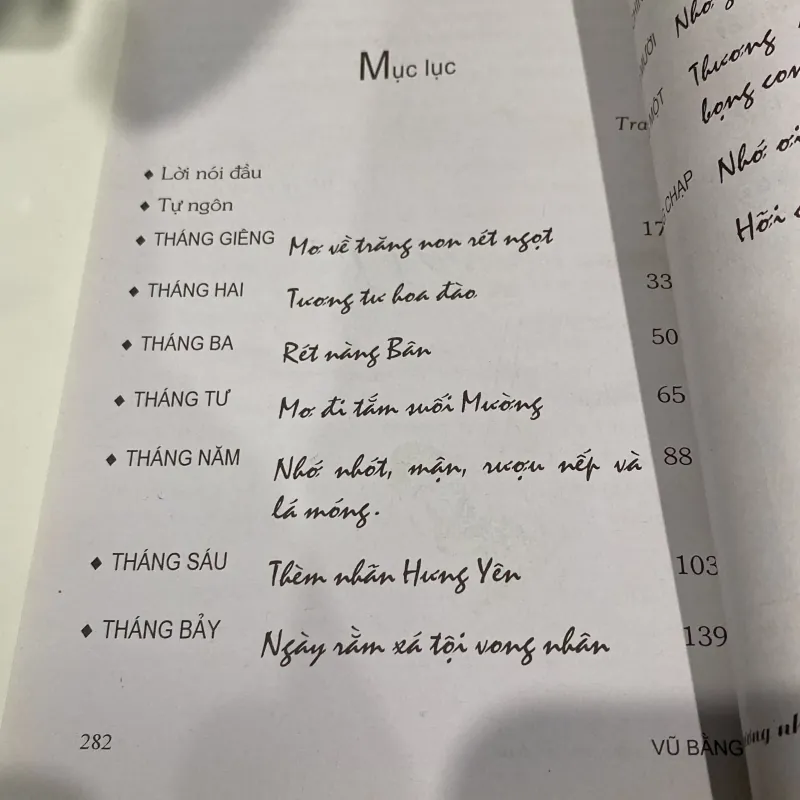 Mục lục
Tra
◆ Lời nói đầu
◆ Tự ngôn
◆ THÁNG GIÊNG Mơ về trăng non rét ngọt 17
◆ THÁNG HAI Tương tư hoa đào 33
◆ THÁNG BA Rét nàng Bân 50
◆ THÁNG TƯ Mơ đi tắm suối Mường 65
◆ THÁNG NĂM Nhớ nhót, mận, rượu nếp và 88
lá móng.
◆ THÁNG SÁU Thèm nhãn Hưng Yên 103
◆ THÁNG BẢY Ngày rằm xá tội vong nhân 139
282 VŨ BẰNG
MƯỜI
MỘT Thương
bọng con
CHẠP Nhớ ơi
Hỡi